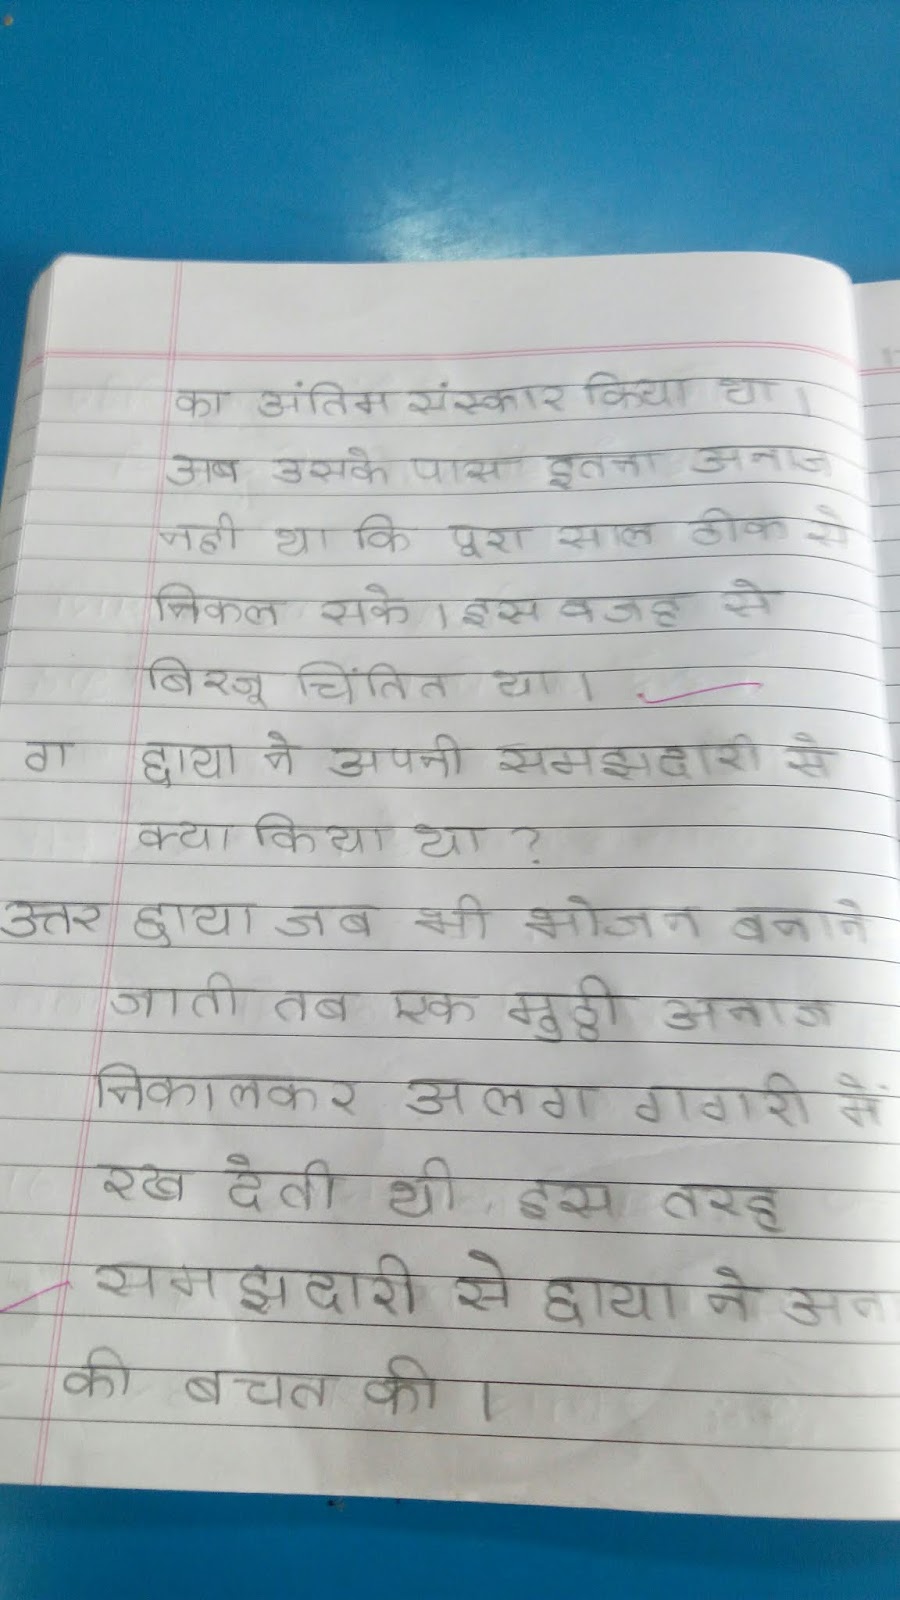 का अंतिम संस्कार किया था।
अब उसके पास इतना अनाज
नही था कि पूरा साल ठीक से
निकल सके। इस वजह से
बिरजू चिंतित था।
ग छाया ने अपनी समझदारी से
क्या किया था ?
उत्तर छाया जब भी भोजन बनाने
जाती तब एक मुठ्ठी अनाज
निकालकर अलग गगरी में
रख देती थी इस तरह
समझदारी से छाया ने अना
की बचत की ।